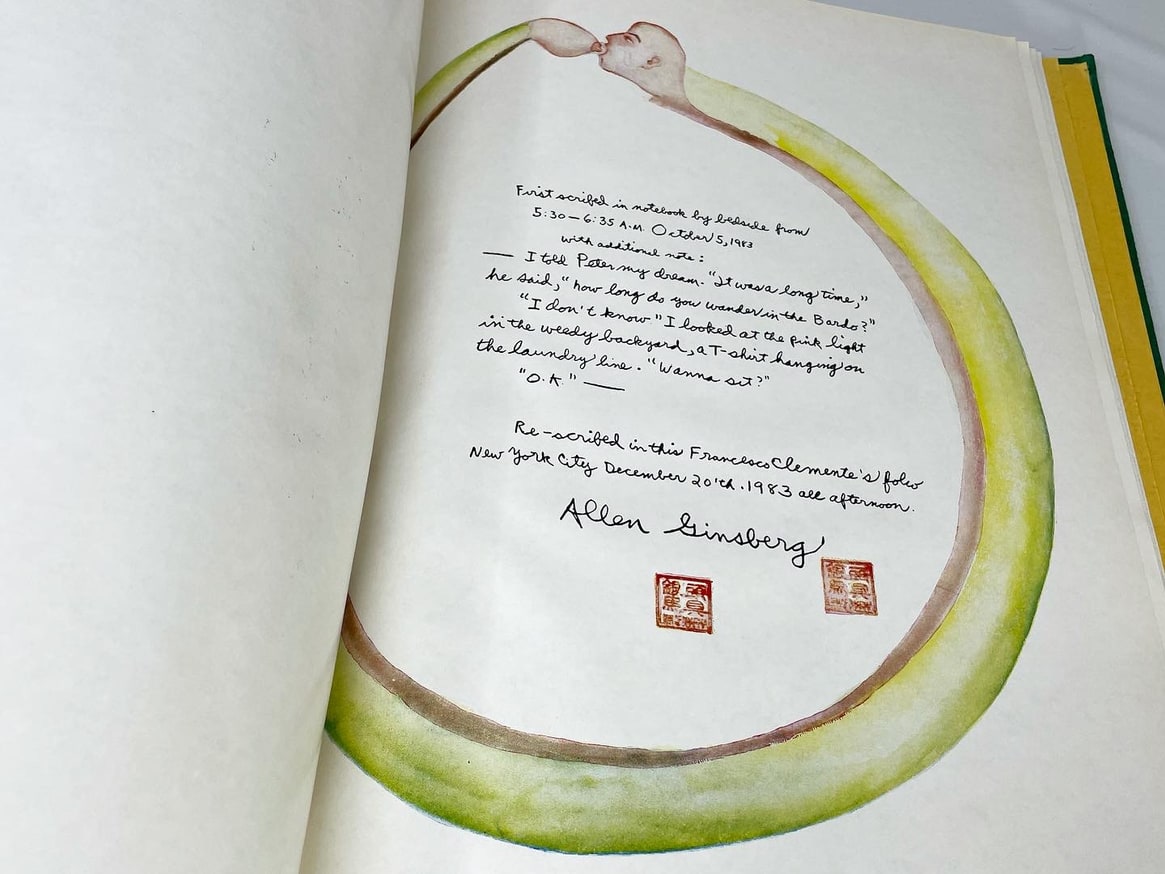 First scribed in notebook by bedside from
5:30 — 6:35 A.M. October 5, 1983
with additional note :
— I told Peter my dream. "It was a long time,"
he said, "how long do you wander in the Bardo?"
"I don't know" I looked at the pink light
in the weedy backyard, a T-shirt hanging on
the laundry line. "Wanna sit?"
"O.K." —
Re-scribed in this Francesco Clemente's folio
New York City December 20'th. 1983 all afternoon.
Allen Ginsberg